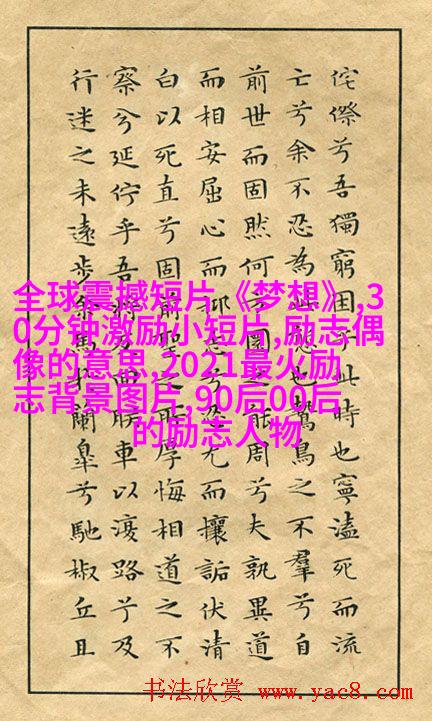 侘傺兮吾獨窮困乎此時也寧溘死而流
亡兮余不忍為此態也鷙鳥之不羣兮自
前世而固然何方圜之能周兮夫孰異道
而相安屈心而抑志兮忍尤而攘詬伏清
白以死直兮固前聖之所厚悔相道之不
察兮延佇乎吾將朕車以復路兮及
行迷之未遠步余馬於蘭皋兮馳椒丘且
全球震撼短片《梦想》,3
0分钟激励小短片,励志偶
像的意思,2021最火励
志背景图片,90后00后
的励志人物
书法欣赏 www.yac8.com